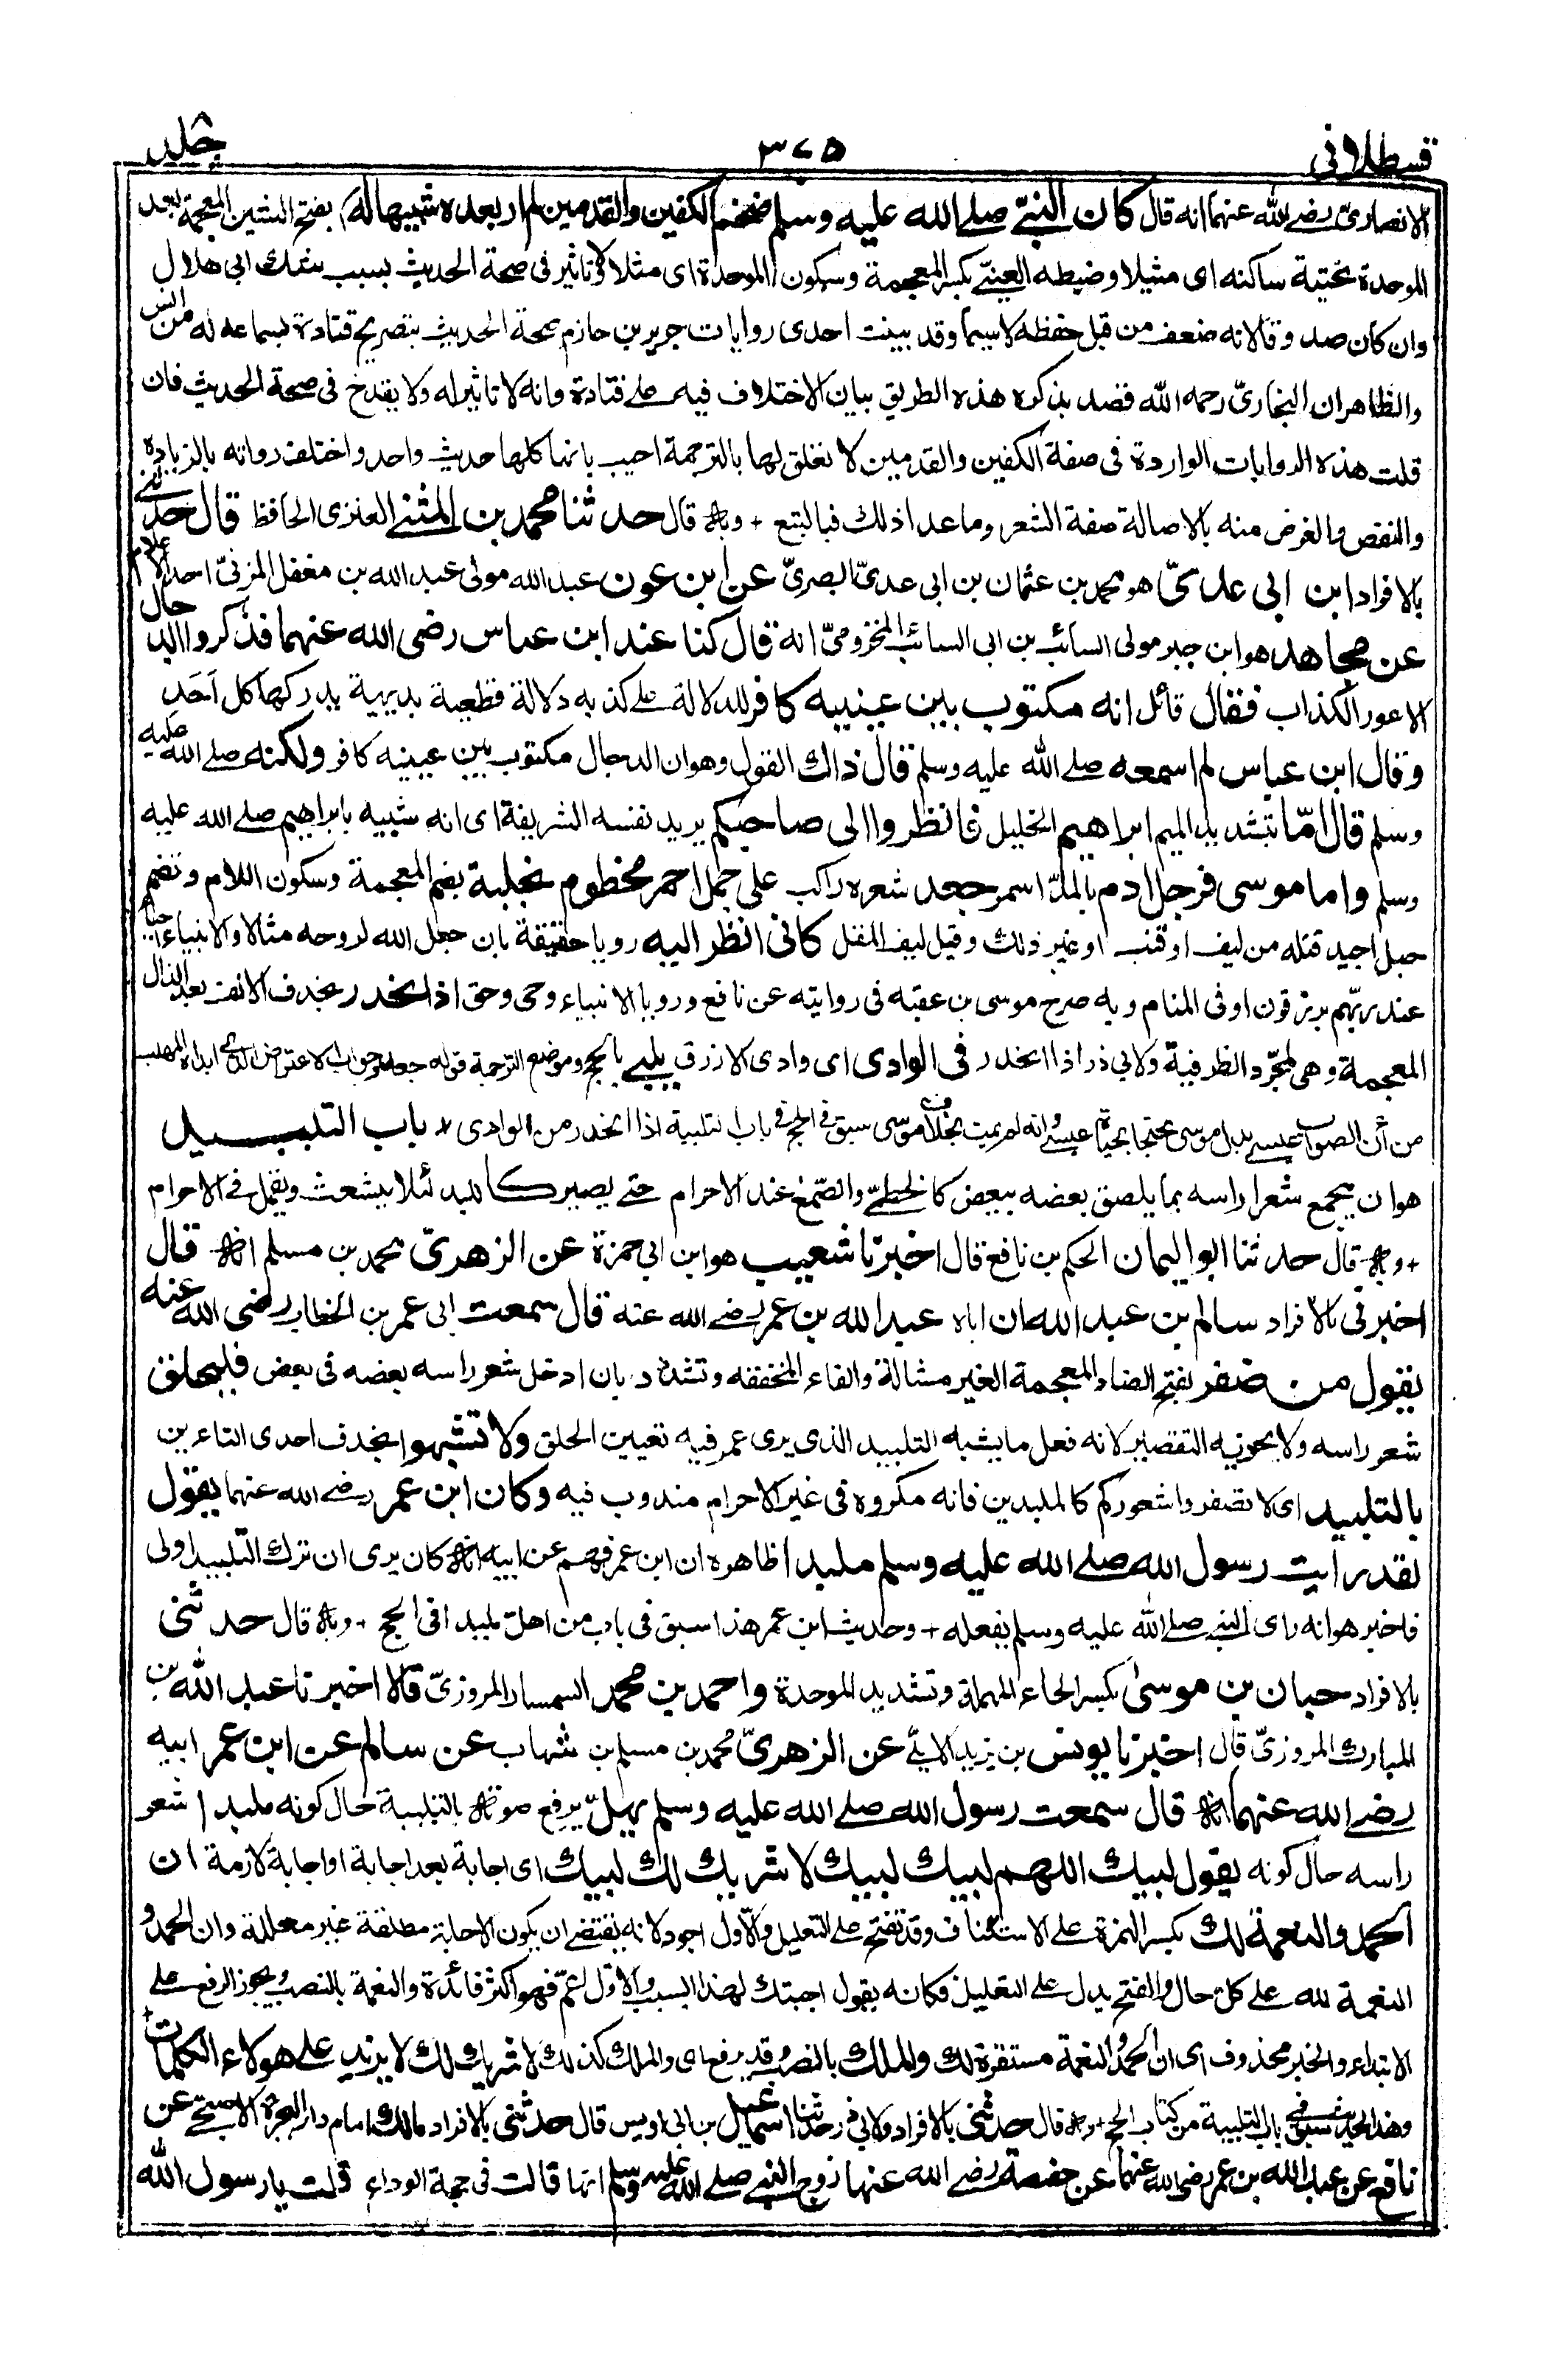 قسطلانی ٣٧٥ جلد ٨
الانصاریّ رضے الله عنهما انه قال كان النبیّ صلے الله علیه وسلم ضخم الكفین والقدمین لم ار بعده شبیها له بفتح الشین المعجمة بعد
الموحدة تحتیة ساكنه ای مثیلا وضبطه العینیّ بكسر المعجمة وسكون الموحدة ای مثلا لا تاثیر فی صحة الحدیث بسبب شك ابی هلال
وان كان صدوقا لانه ضعف من قبل حفظه لا سیما وقد بینت احدی روایات جریر بن حازم صحة الحدیث بتصریح قتادة بسماعه له من انس
والظاهر ان البخاریّ رحمه الله قصد بذكره هذه الطریق بیان الاختلاف فیه علے قتادة وانه لا تاثیر له ولا یقدح فی صحة الحدیث فان
قلت هذه الروایات الواردة فی صفة الكفین والقدمین لا تعلق لها بالترجمة اجیب بانها كلها حدیث واحد واختلف رواته بالزیادة
والنقص والغرض منه بالاصالة صفة الشعر وما عدا ذلك فبالتبع + وبه قال حدثنا محمد بن المثنے العنزی الحافظ قال حدثنے
بالافراد ابن ابی عدیّ هو محمد بن عثمان بن ابی عدیّ البصریّ عن ابن عون عبد الله مولی عبد الله بن مغفل المزنیّ احد الاعلام
عن مجاهد هو ابن جبر مولی السائب بن ابی السائب المخزومیّ انه قال كنا عند ابن عباس رضی الله عنهما فذكروا الدجال
الاعور الكذاب فقال قائل انه مكتوب بین عینیه كافر للدلالة علے كذبه دلالة قطعیة بدیهیة یدركها كل احد
وقال ابن عباس لم اسمعه صلے الله علیه وسلم قال ذاك القول وهو ان الدجال مكتوب بین عینیه كافر ولكنه صلے الله علیه
وسلم قال امّا بتشدید المیم ابراهیم الخلیل فانظروا الی صاحبكم یرید نفسه الشریفة ای انه شبیه بابراهیم صلے الله علیه
وسلم واما موسی فرجل ادم بالمدّ اسمر جعد شعره راكب علی جمل احمر مخطوم بخلبة بضم المعجمة وسكون اللام وتضم
حبل اجید فتله من لیف او قنب او غیر ذلك وقیل لیف المقل كانی انظر الیه رویا حقیقة بان جعل الله لروحه مثالا والانبیاء احیاء
عند ربّهم یرزقون او فی المنام وبه صرح موسی بن عقبه فی روایته عن نافع ورویا الانبیاء وحی وحق اذ انحدر بحذف الالف بعد الذال
المعجمة وهی لمجرّد الظرفیة ولابی ذر اذا انحدر فی الوادی ای وادی الازرق یلبے بالحج وموضع الترجمة قوله جعد وجواب الاعتراض الذی ابداه المهلب
من انّ الصواب عیسے بدل موسی محتجا بحیاة عیسے وانه لم یمت بخلاف موسی سبق فی الحج فی باب التلبیة اذا انحدر من الوادی + باب التلبید
هو ان یجمع شعر راسه بما یلصق بعضه ببعض كالخطمیّ والصّمغ عند الاحرام حتے یصیر كاللبد لئلا یشعث ویقمل فے الاحرام
+ وبه قال حدثنا ابو الیمان الحكم بن نافع قال اخبرنا شعیب هو ابن ابی حمزة عن الزهریّ محمد بن مسلم انه قال
اخبرنی بالافراد سالم بن عبد الله ان اباه عبد الله بن عمر رضے الله عنه قال سمعت ابی عمر بن الخطاب رضی الله عنه
یقول من ضفر بفتح الضاد المعجمة الغیر مشالة والفاء المخففه وتشدّد بان ادخل شعر راسه بعضه فی بعض فلیحلق
شعر راسه ولا یجوز به التقصیر لانه فعل ما یشبه التلبید الذی یری عمر فیه تعیین الحلق ولا تشبهوا بحذف احدی التاءین
بالتلبید ای لا تضفروا شعوركم كالملبدین فانه مكروه فی غیر الاحرام مندوب فیه وكان ابن عمر رضے الله عنهما یقول
لقد رایت رسول الله صلے الله علیه وسلم ملبدا ظاهره ان ابن عمر فهم عن ابیه انه كان یری ان ترك التلبید اولی
فاخبر هو انه رای النبے صلے الله علیه وسلم یفعله + وحدیث ابن عمر هذا سبق فی باب من اهل ملبدا فی الحج + وبه قال حدثنی
بالافراد حبان بن موسی بكسر الحاء المهملة وتشدید الموحدة واحمد بن محمد السمسار المروزیّ قالا اخبرنا عبد الله بن
المبارك المروزیّ قال اخبرنا یونس بن یزید الایلیّ عن الزهریّ محمد بن مسلم بن شهاب عن سالم عن ابن عمر ابیه
رضے الله عنهما انه قال سمعت رسول الله صلے الله علیه وسلم یهلّ یرفع صوته بالتلبیة حال كونه ملبدا شعر
راسه حال كونه یقول لبیك اللهم لبیك لبیك لا شریك لك لبیك ای اجابة بعد اجابة او اجابة لازمة ان
الحمد والنعمة لك بكسر الهمزة علی الاستئناف وقد تفتح علے التعلیل والاول اجود لانه یقتضے ان یكون الاجابة مطلقة غیر معللة وان الحمد و
النعمة لله علی كل حال والفتح یدل علی التعلیل فكانه یقول اجبتك لهذا السبب والاوّل اعمّ فهو اكثر فائدة والنعمة بالنصب ویجوز الرفع علی
الابتداء والخبر محذوف ای ان الحمد والنعمة مستقرة لك والملك بالنصب وقد یرفع ای والملك كذلك لا شریك لك لا یزید علی هولاء الكلمات
وهذا الحدیث سبق فی باب التلبیة من كتاب الحج + وبه قال حدثنی بالافراد ولابی ذر حدثنا اسماعیل بن ابی اویس قال حدثنی بالافراد مالك امام دار الهجرة الاصبحے عن
نافع عن عبد الله بن عمر رضی الله عنهما عن حفصة رضے الله عنها زوج النبے صلے الله علیه وسلم انها قالت فی حجة الوداع قلت یا رسول الله